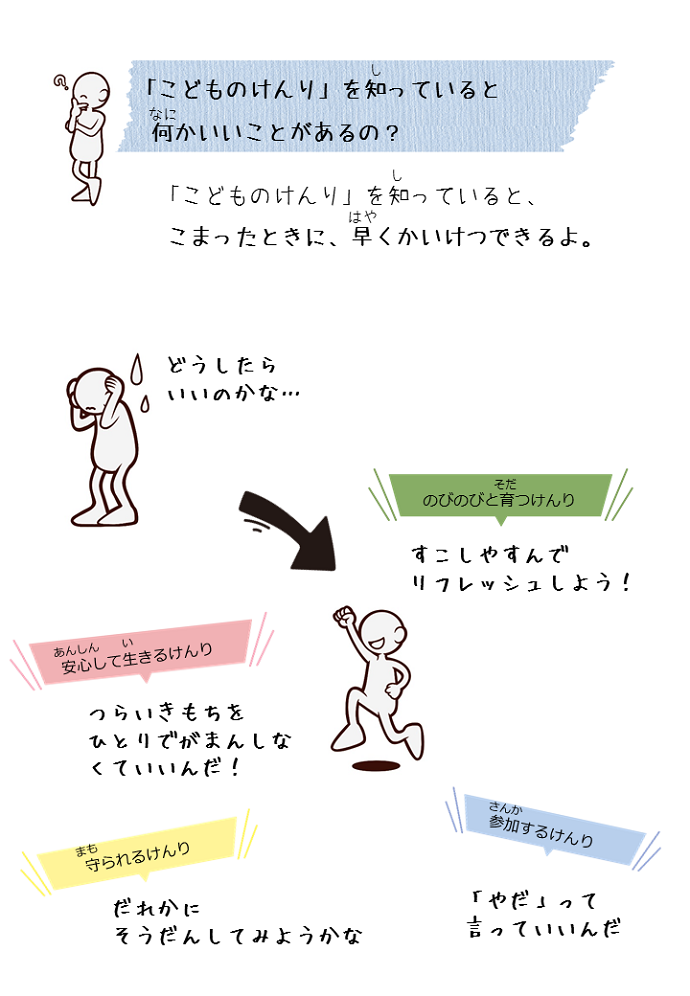 ?
し
「こどものけんり」を知っていると
なに
何かいいことがあるの？
し
「こどものけんり」を知っていると、
はや
こまったときに、早くかいけつできるよ。
どうしたら
いいのかな…
そだ
のびのびと育つけんり
すこしやすんで
リフレッシュしよう！
あんしん い
安心して生きるけんり
つらいきもちを
ひとりでがまんしな
くていいんだ！
まも
守られるけんり
だれかに
そうだんしてみようかな
さんか
参加するけんり
「やだ」って
言っていいんだ